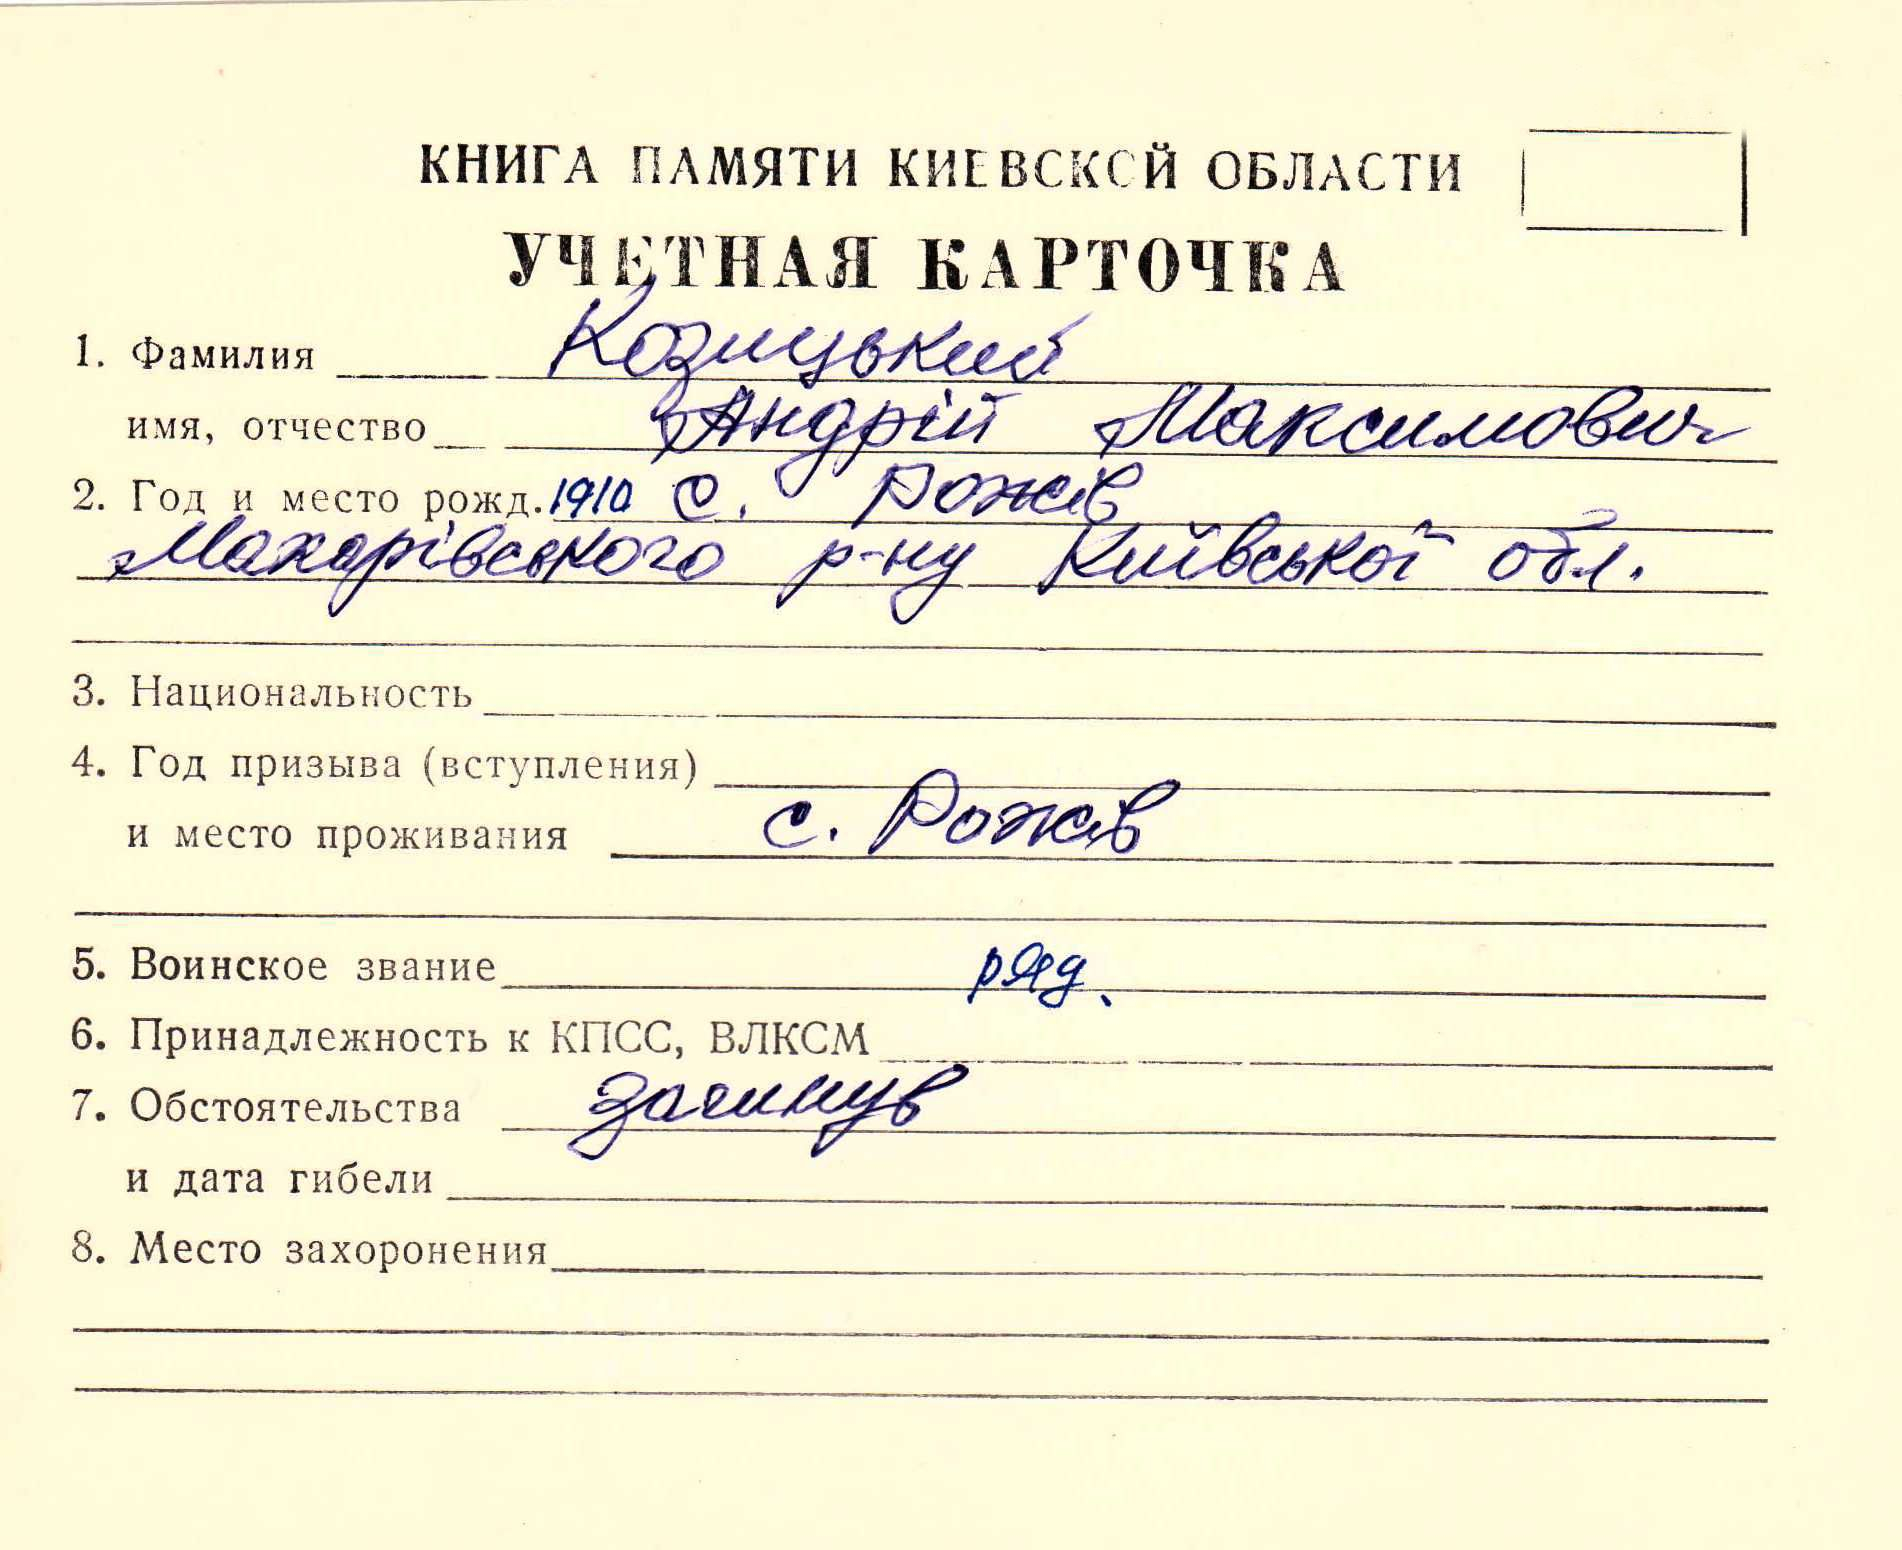 КНИГА ПАМЯТИ КИЕВСКОЙ ОБЛАСТИ
УЧЕТНАЯ КАРТОЧКА
1. Фамилия Козицький
имя, отчество Андрій Максимович
2. Год и место рожд. 1910 с. Рожів
Макарівського р-ну Київської обл.
3. Национальность
4. Год призыва (вступления)
и место проживания с. Рожів
5. Воинское звание ряд.
6. Принадлежность к КПСС, ВЛКСМ
7. Обстоятельства загинув
и дата гибели
8. Место захоронения